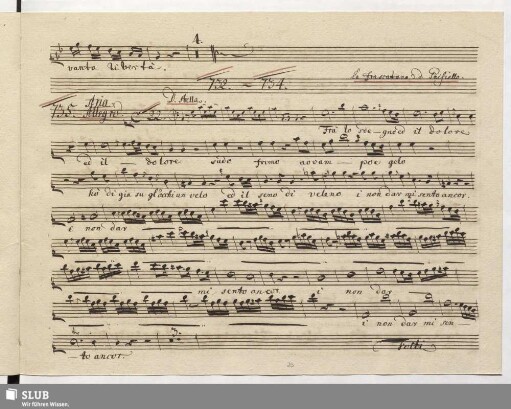 4.
vanta libertà.
732. — 734.
la Frascatana d. Paisiello
735. Aria
Allegro
D. Stella.
Frà lo sde-gno ed il dolore
ed il — dolore sudo fremo avvam-po e gelo
hò di già su gl'occhi un velo ed il seno di veleno e non dar mi sento ancor.
e non dar
mi sento ancor e non dar
e non dar mi sen-
-to ancor.
Volti
SLUB
Wir führen Wissen.